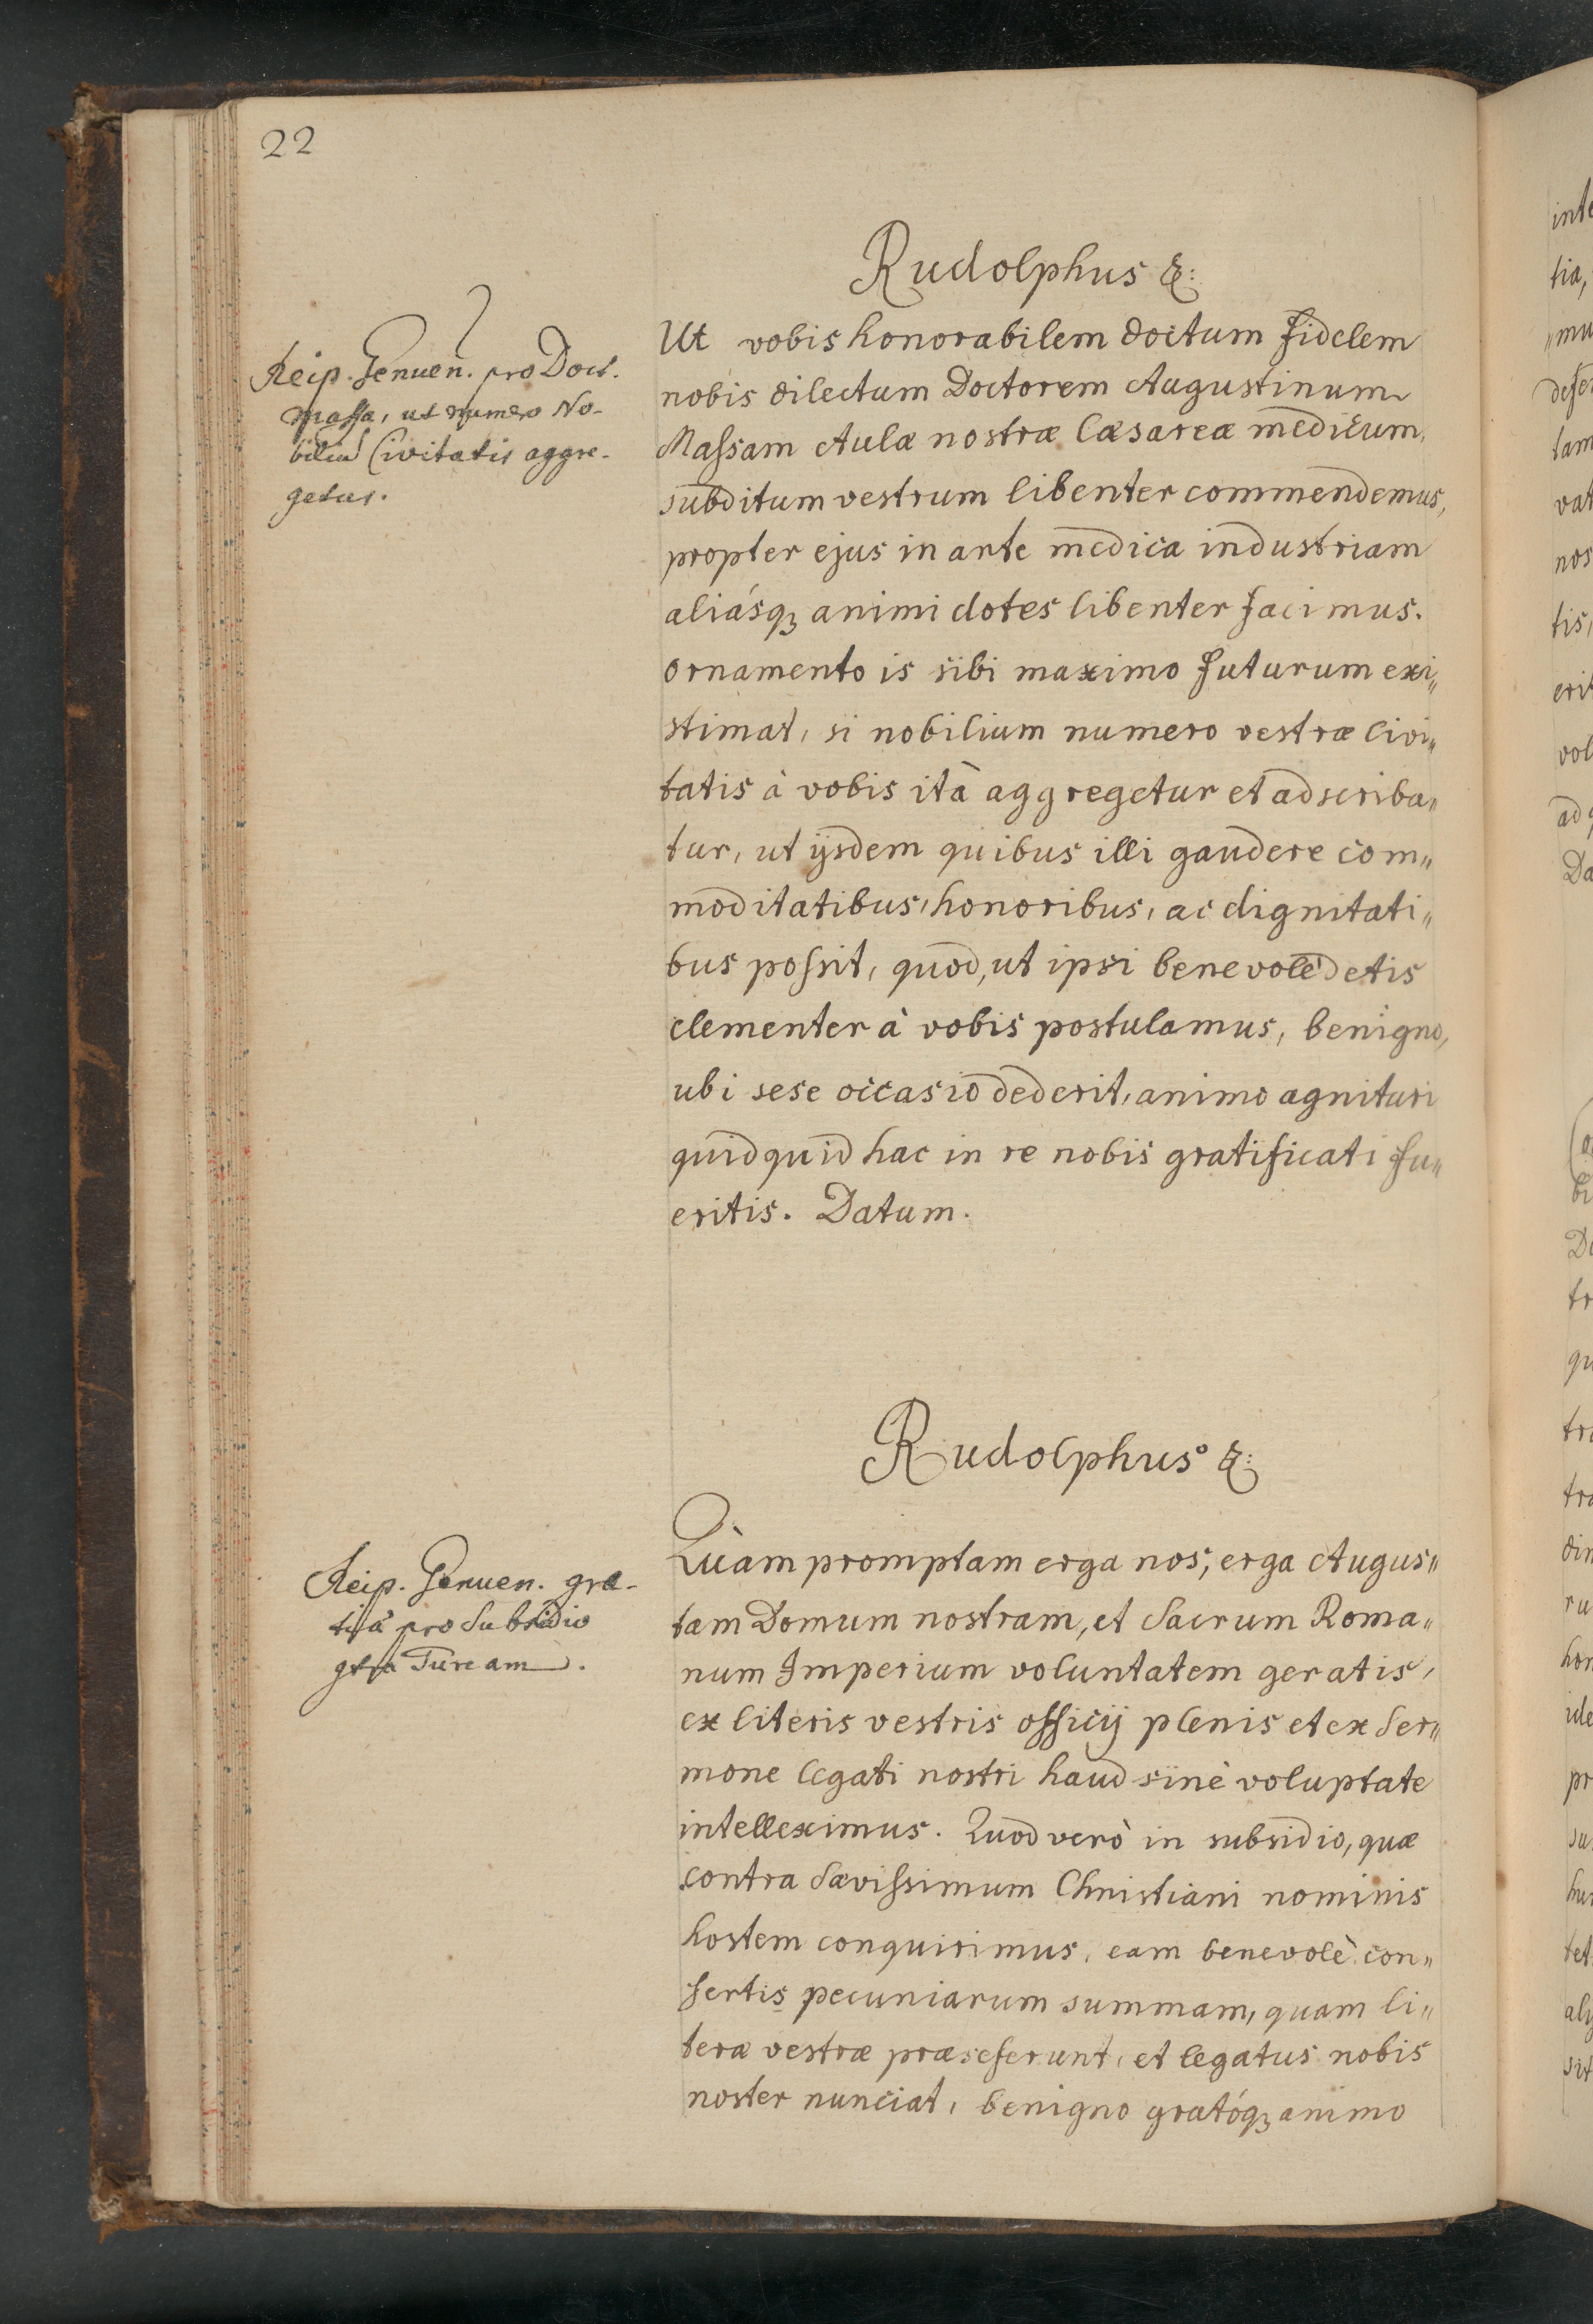 22
Rudolphus &:
Reip. Genuen. pro Doct.
Massa, ut numero No-
biliũ Civitatis aggre-
getur.
Ut vobis honorabilem doctum fidelem
nobis dilectum Doctorem Augustinum
Massam Aulæ nostræ Cæsareæ medicum,
subditum vestrum libenter commendemus,
propter ejus in arte medica industriam
aliásq3 animi dotes libenter facimus.
ornamento is sibi maximo futurum exi„
stimat, si nobilium numero vestræ Civi„
tatis à vobis ità aggregetur et adscriba„
tur, ut ijsdem quibus illi gaudere com„
moditatibus, honoribus, ac dignitati„
bus possit, quod, ut ipsi benevolè detis
clementer à vobis postulamus, benigno,
ubi sese occasio dederit, animo agnituri
quidquid hac in re nobis gratificati fu„
eritis. Datum.
Rudolphus &:
Reip. Genuen. gra-
tiæ pro Subsidio
Turcam.
Quàm promptam erga nos, erga Augus„
tam Domum nostram, et Sacrum Roma„
num Imperium voluntatem geratis,
ex literis vestris officij plenis et ex Ser„
mone legati nostri haud sinè voluptate
intelleximus. Quod verò in subsidio, quæ
contra Sævissimum Christiani nominis
hostem conquirimus, eam benevolè con„
fertis pecuniarum summam, quam li„
teræ vestræ præseferunt, et legatus nobis
noster nunciat, benigno gratóq3 animo